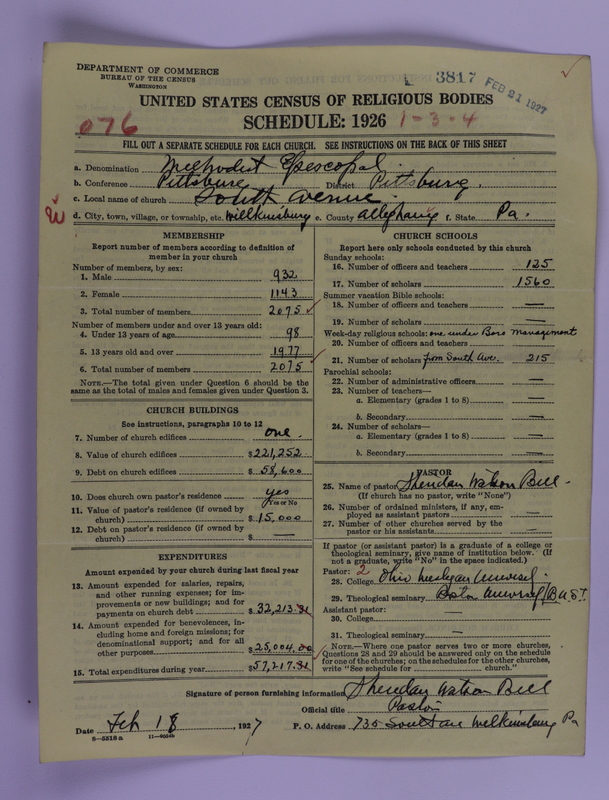 DEPARTMENT OF COMMERCE
BUREAU OF THE CENSUS
WASHINGTON
3817
FEB 21 1927
UNITED STATES CENSUS OF RELIGIOUS BODIES
076 SCHEDULE: 1926 1-3-4
FILL OUT A SEPARATE SCHEDULE FOR EACH CHURCH. SEE INSTRUCTIONS ON THE BACK OF THIS SHEET
a. Denomination Methodist Episcopal
b. Conference Pittsburg District Pittsburg
c. Local name of church South Avenue
d. City, town, village, or township, etc. Wilkinsburg e. County Allegheny f. State Pa.
MEMBERSHIP
Report number of members according to definition of
member in your church
Number of members, by sex:
1. Male 932
2. Female 1143
3. Total number of members 2075
Number of members under and over 13 years old:
4. Under 13 years of age 98
5. 13 years old and over 1977
6. Total number of members 2075
NOTE.—The total given under Question 6 should be the
same as the total of males and females given under Question 3.
CHURCH BUILDINGS
See instructions, paragraphs 10 to 12
7. Number of church edifices one
8. Value of church edifices $221,252
9. Debt on church edifices $58,600
10. Does church own pastor's residence yes
Yes or No
11. Value of pastor's residence (if owned by
church) $15,000
12. Debt on pastor's residence (if owned by
church) $ —
EXPENDITURES
Amount expended by your church during last fiscal year
13. Amount expended for salaries, repairs,
and other running expenses; for im-
provements or new buildings; and for
payments on church debt $32,213.31
14. Amount expended for benevolences, in-
cluding home and foreign missions; for
denominational support; and for all
other purposes $25,004.00
15. Total expenditures during year $57,217.31
CHURCH SCHOOLS
Report here only schools conducted by this church
Sunday schools:
16. Number of officers and teachers 125
17. Number of scholars 1560
Summer vacation Bible schools:
18. Number of officers and teachers —
19. Number of scholars —
Week-day religious schools: one under Boro management
20. Number of officers and teachers
21. Number of scholars from South Ave. 215
Parochial schools:
22. Number of administrative officers —
23. Number of teachers—
a. Elementary (grades 1 to 8) —
b. Secondary —
24. Number of scholars—
a. Elementary (grades 1 to 8) —
b. Secondary —
PASTOR
25. Name of pastor Sheridan Watson Bell
(If church has no pastor, write "None")
26. Number of ordained ministers, if any, em-
ployed as assistant pastors —
27. Number of other churches served by the
pastor or his assistants
If pastor (or assistant pastor) is a graduate of a college or
theological seminary, give name of institution below. (If
not a graduate, write "No" in the space indicated.)
Pastor: 2
28. College Ohio Wesleyan University
29. Theological seminary Boston University (B.U.S.T.
Assistant pastor:
30. College
31. Theological seminary —
NOTE.—Where one pastor serves two or more churches,
Questions 28 and 29 should be answered only on the schedule
for one of the churches; on the schedules for the other churches,
write "See schedule for church."
Signature of person furnishing information Sheridan Watson Bell
Official title Pastor
Date Feb 18, 1927 P. O. Address 735 South Ave Wilkinsburg Pa
8—5518 a